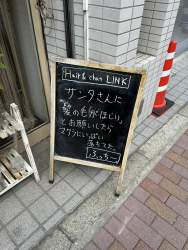 Hair & chou LINK
サンタさんに
"髪の毛がほしい。"
とお願いしたら
マクラにいっぱい
落ちてた。